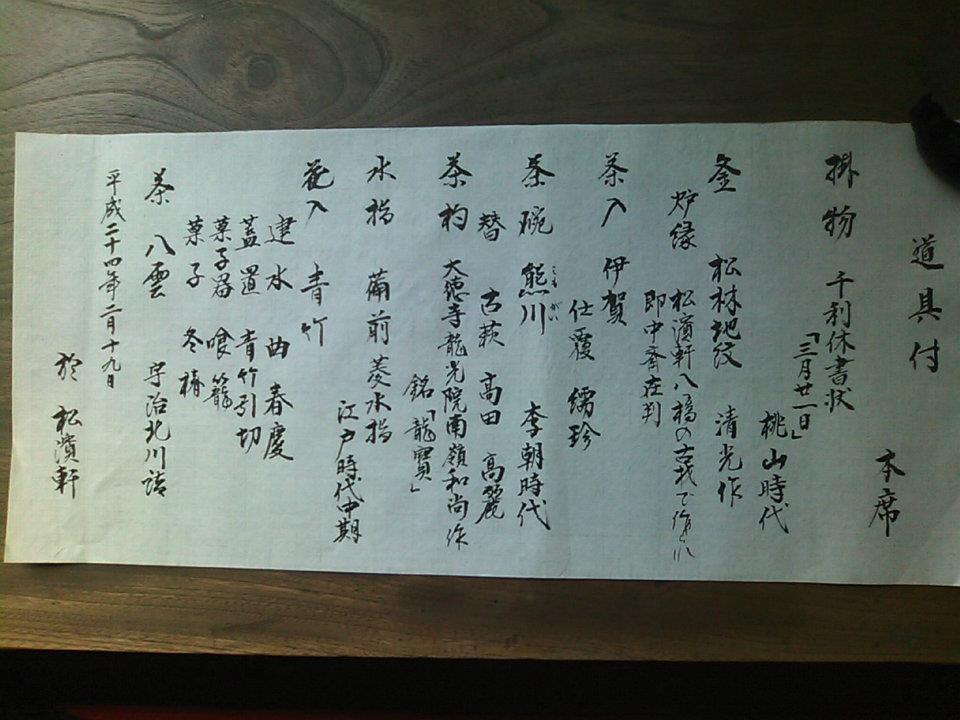 道具付
本席
掛物 千利休書状
「三月廿一日」
桃山時代
釜 松林地紋 清光作
炉縁 松濱軒八橋の古材で作れ
即中斎在判
茶入 伊賀
仕覆 繻珍
茶碗 熊川 李朝時代
こもがい
替 古萩 高田 高麗
茶杓 大徳寺龍光院南嶺和尚作
銘「龍寶」
水指 備前菱水指
江戸時代中期
花入 青竹
建水 曲 春慶
蓋置 青竹引切
菓子器 喰籠
菓子 冬椿
茶 八雲 宇治北川詰
平成二十四年二月十九日
於 松濱軒